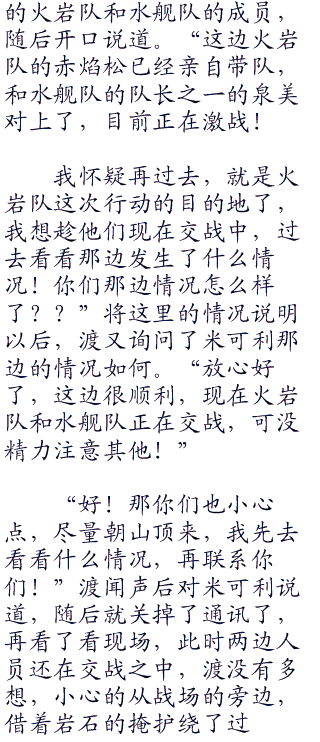 的火岩队和水舰队的成员，
随后开口说道。“这边火岩
队的赤焰松已经亲自带队，
和水舰队的队长之一的泉美
对上了，目前正在激战！
我怀疑再过去，就是火
岩队这次行动的目的地了，
我想趁他们现在交战中，过
去看看那边发生了什么情
况！你们那边情况怎么样
了？？”将这里的情况说明
以后，渡又询问了米可利那
边的情况如何。“放心好
了，这边很顺利，现在火岩
队和水舰队正在交战，可没
精力注意其他！”
“好！那你们也小心
点，尽量朝山顶来，我先去
看看什么情况，再联系你
们！”渡闻声后对米可利说
道，随后就关掉了通讯了，
再看了看现场，此时两边人
员还在交战之中，渡没有多
想，小心的从战场的旁边，
借着岩石的掩护绕了过